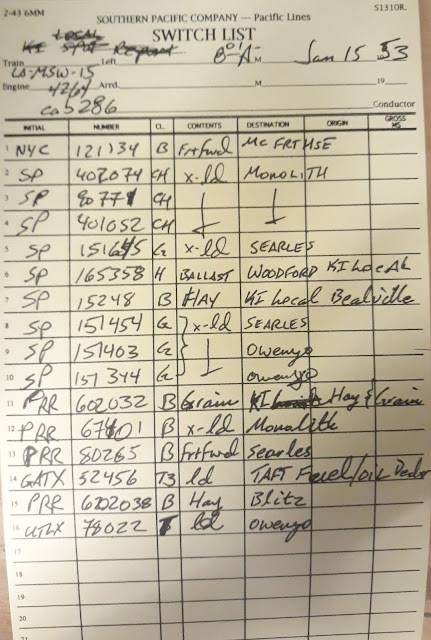 2-43 6MM S1310R.
SOUTHERN PACIFIC COMPANY — Pacific Lines
SWITCH LIST
LOCAL
KI SPOT Report
Train Left 8 01 A M Jan 15 1953
LA-MSW-15
Engine 4264 Arrd. M 19
ca 5286 Conductor
INITIAL NUMBER CL. CONTENTS DESTINATION ORIGIN GROSS MS
1 NYC 121134 B Frtfwd Mc FRTHSE
2 SP 402074 GH x-ld MONOLITH
3 SP 90771 GH ↓ ↓
4 SP 401052 GH
5 SP 151645 G x-ld SEARLES
6 SP 165358 H BALLAST WOODFORD KI LOCAL
7 SP 15248 B HAY KI Local Bealville
8 SP 151454 G x-ld SEARLES
9 SP 151403 G ↓ Owenyo
10 SP 151344 G owenyo
11 PRR 602032 B Grain KI Hay & Grain
12 PRR 67401 B x-ld Monolith
13 PRR 80265 B Frtfwd Searles
14 GATX 52456 T3 ld TAFT Fuel/oil Dealer
15 PRR 602038 B Hay Blitz
16 UTLX 78022 T ld owenyo
17
18
19
20
21